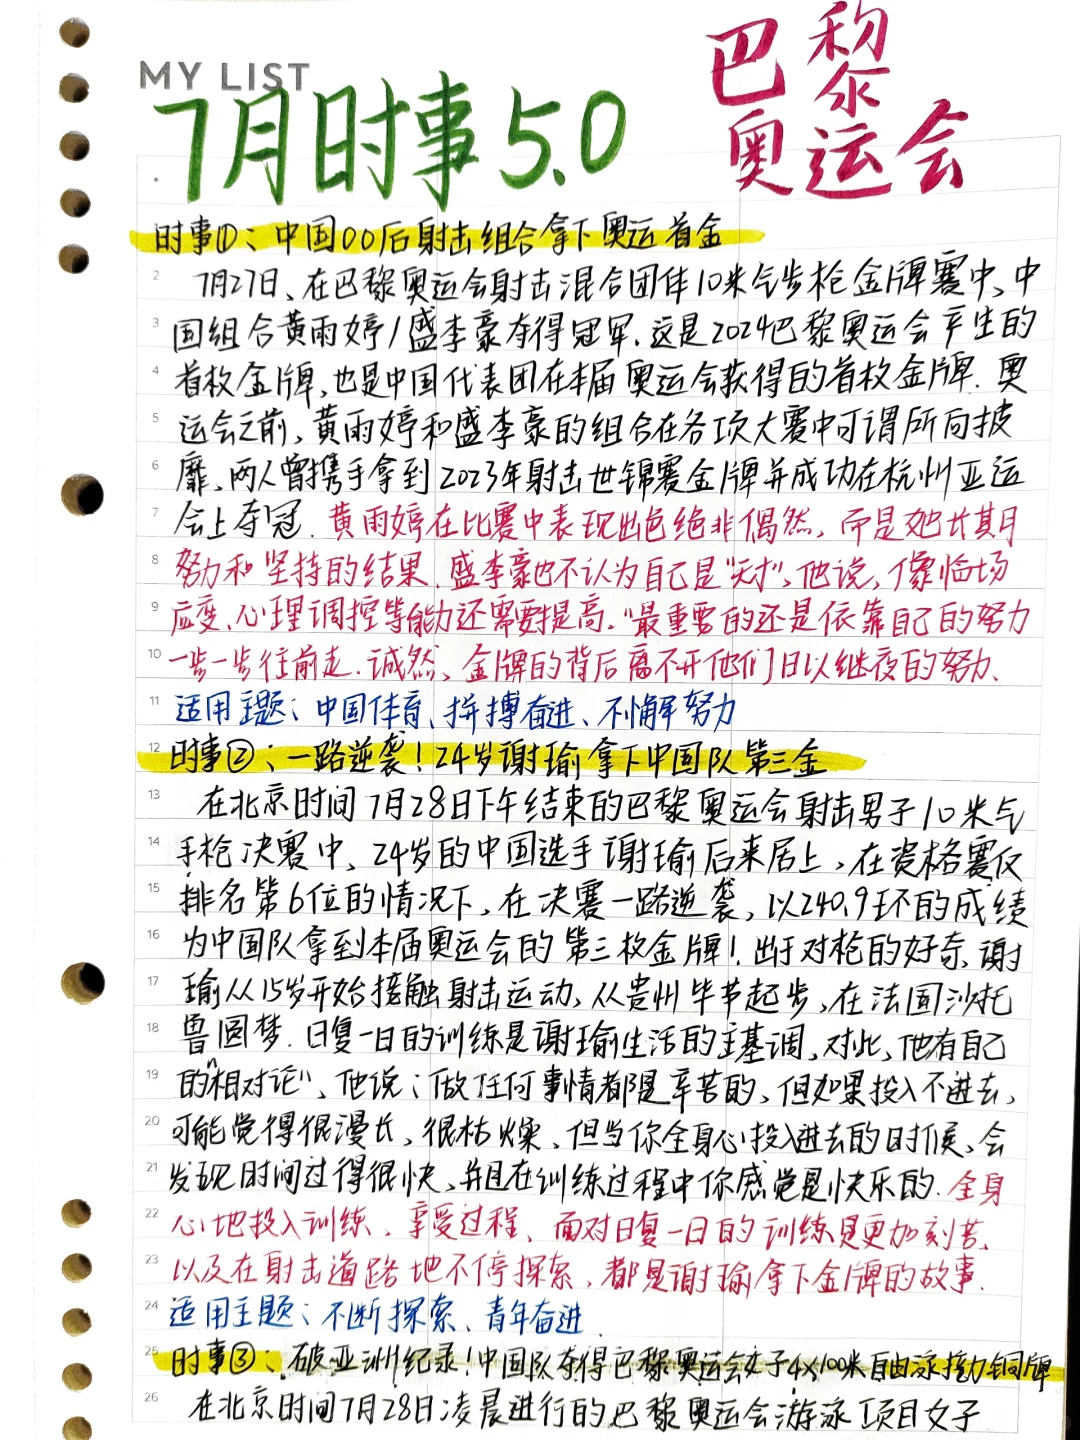 MY LIST
7月时事5.0
巴黎
奥运会
时事①:中国00后射击组合拿下奥运首金
2 7月27日、在巴黎奥运会射击混合团体10米气步枪金牌赛中、中
3 国组合黄雨婷/盛李豪夺得冠军.这是2024巴黎奥运会产生的
4 首枚金牌,也是中国代表团在本届奥运会获得的首枚金牌.奥
5 运会之前,黄雨婷和盛李豪的组合在各项大赛中可谓所向披
6 靡,两人曾携手拿到2023年射击世锦赛金牌并成功在杭州亚运
7 会上夺冠.黄雨婷在比赛中表现出色绝非偶然,而是她长期
8 努力和坚持的结果.盛李豪也不认为自己是"天才",他说,像临场
9 应变、心理调控等能力还需要提高."最重要的还是依靠自己的努力
10 一步一步往前走.诚然、金牌的背后离不开他们日以继夜的努力、
11 适用主题:中国体育、拼搏奋进、不懈努力
12 时事②:一路逆袭!24岁谢瑜拿下中国队第三金
13 在北京时间7月28日下午结束的巴黎奥运会射击男子10米气
14 手枪决赛中、24岁的中国选手谢瑜后来居上,在资格赛仅
15 排名第6位的情况下,在决赛一路逆袭,以240.9环的成绩
16 为中国队拿到本届奥运会的第三枚金牌!出于对枪的好奇,谢
17 瑜从15岁开始接触射击运动,从贵州毕节起步,在法国沙托
18 鲁圆梦.日复一日的训练是谢瑜生活的主基调,对此,他有自己
19 的"相对论",他说:做任何事情都是辛苦的,但如果投入不进去,
20 可能觉得很漫长,很枯燥、但当你全身心投入进去的时候,会
21 发现时间过得很快,并且在训练过程中你感觉是快乐的.全身
22 心地投入训练、享受过程、面对日复一日的训练是更加刻苦、
23 以及在射击道路地不停探索,都是谢瑜拿下金牌的故事.
24 适用主题:不断探索、青年奋进
25 时事③:破亚洲纪录!中国队夺得巴黎奥运会女子4×100米自由泳接力铜牌
26 在北京时间7月28日凌晨进行的巴黎奥运会游泳项目女子